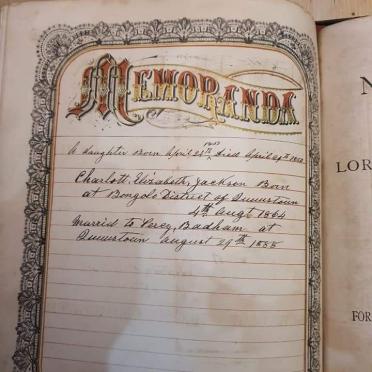 MEMORANDA
A daughter Born April 28th, Died April 29th
Charlott, Elizabeth, Jackson Born
at Bongolo District of Queenstown
4th Augt 1864
Married to Percy, Badham at
Queenstown august 29th 1888
N
LOR
FOR